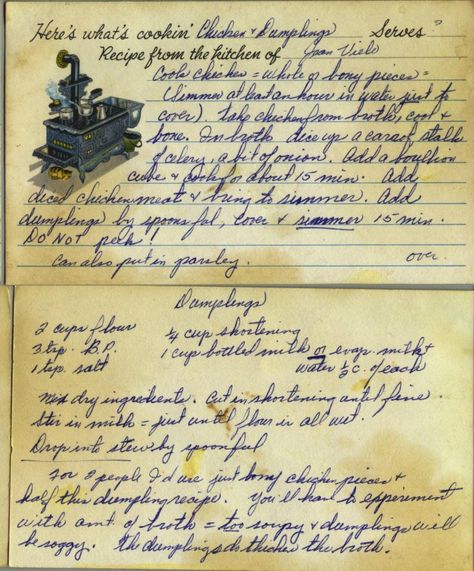 Here's what's cookin' Chicken & Dumplings Serves ?
Recipe from the kitchen of Joan Viele
Cook chicken = whole or bony pieces =
(Simmer at least an hour in water just to
cover). Take chicken from broth, cool &
bone. In broth dice up a carrot, stalk
of celery, a bit of onion. Add a boullion
cube & cook for about 15 min. Add
diced chicken meat & bring to simmer. Add
dumplings by spoonsful, cover & simmer 15 min.
DO NOT peek!
Can also put in parsley. over.
Dumplings
2 cups flour 1/4 cup shortening
3 tsp. B.P. 1 cup bottled milk or evap. milk &
1 tsp. salt water 1/2 c. of each
Mix dry ingredients. Cut in shortening until fine.
Stir in milk = just until flour is all wet.
Drop into stew by spoonful
For 2 people I'd use just bony chicken pieces &
half this dumpling recipe. You'll have to epperiment
with amt. of broth = too soupy & dumplings will
be soggy. Th dumplings do thicken the broth.